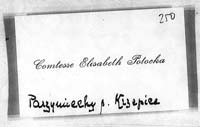 250
Comtesse Elisabeth Potocka
Parzymiechy p. Krzepice